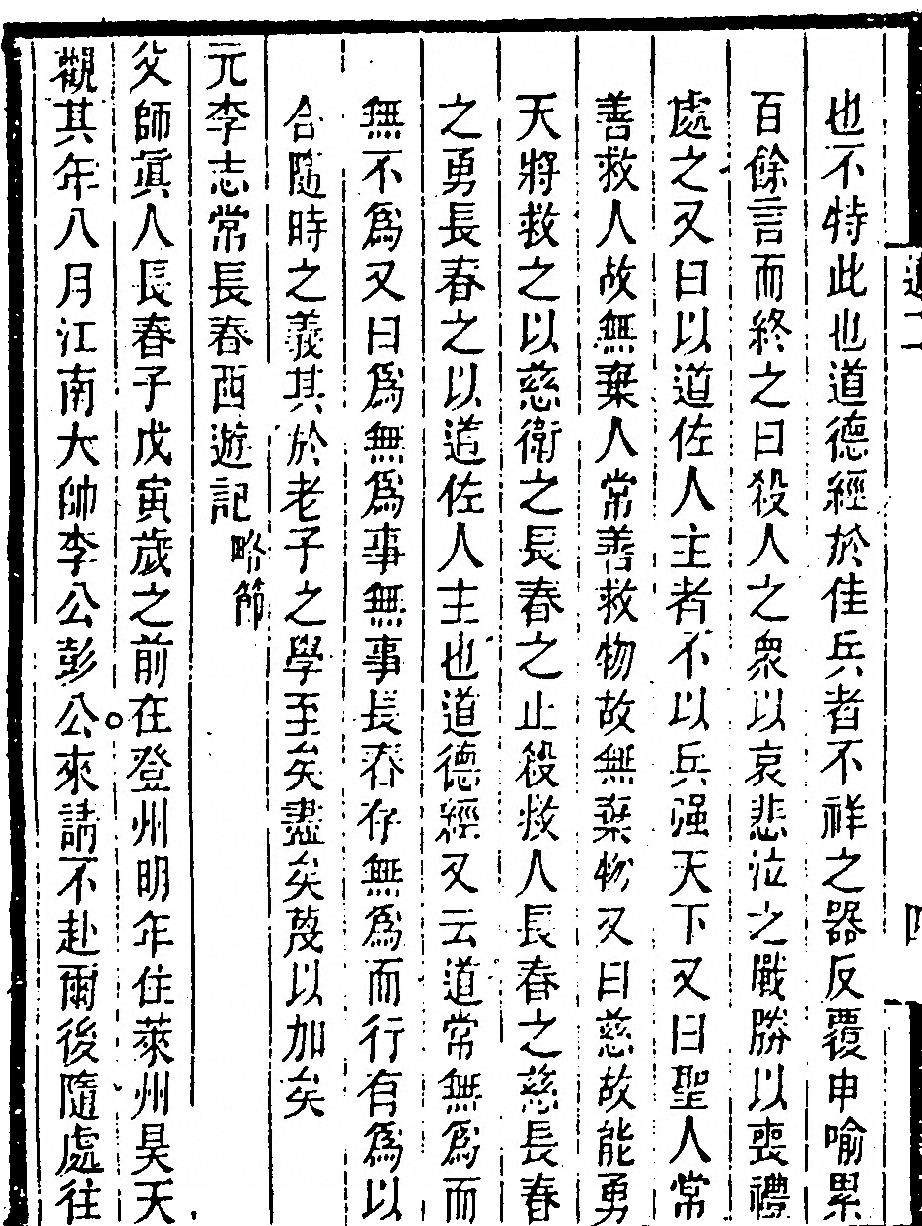 也不特此也道德經於佳兵者不祥之器反覆申喻累
百餘言而終之曰殺人之衆以哀悲泣之戰勝以喪禮
處之又曰以道佐人主者不以兵强天下又曰聖人常
善救人故無棄人常善救物故無棄物又曰慈故能勇
天將救之以慈衛之長春之止殺救人長春之慈長春
之勇長春之以道佐人主也道德經又云道常無爲而
無不爲又曰爲無爲事無事長春存無爲而行有爲以
合隨時之義其於老子之學至矣盡矣蔑以加矣
元李志常長春西遊記略節
父師眞人長春子戊寅歲之前在登州明年住萊州昊天
觀其年八月江南大帥李公彭公來請不赴爾後隨處往
四